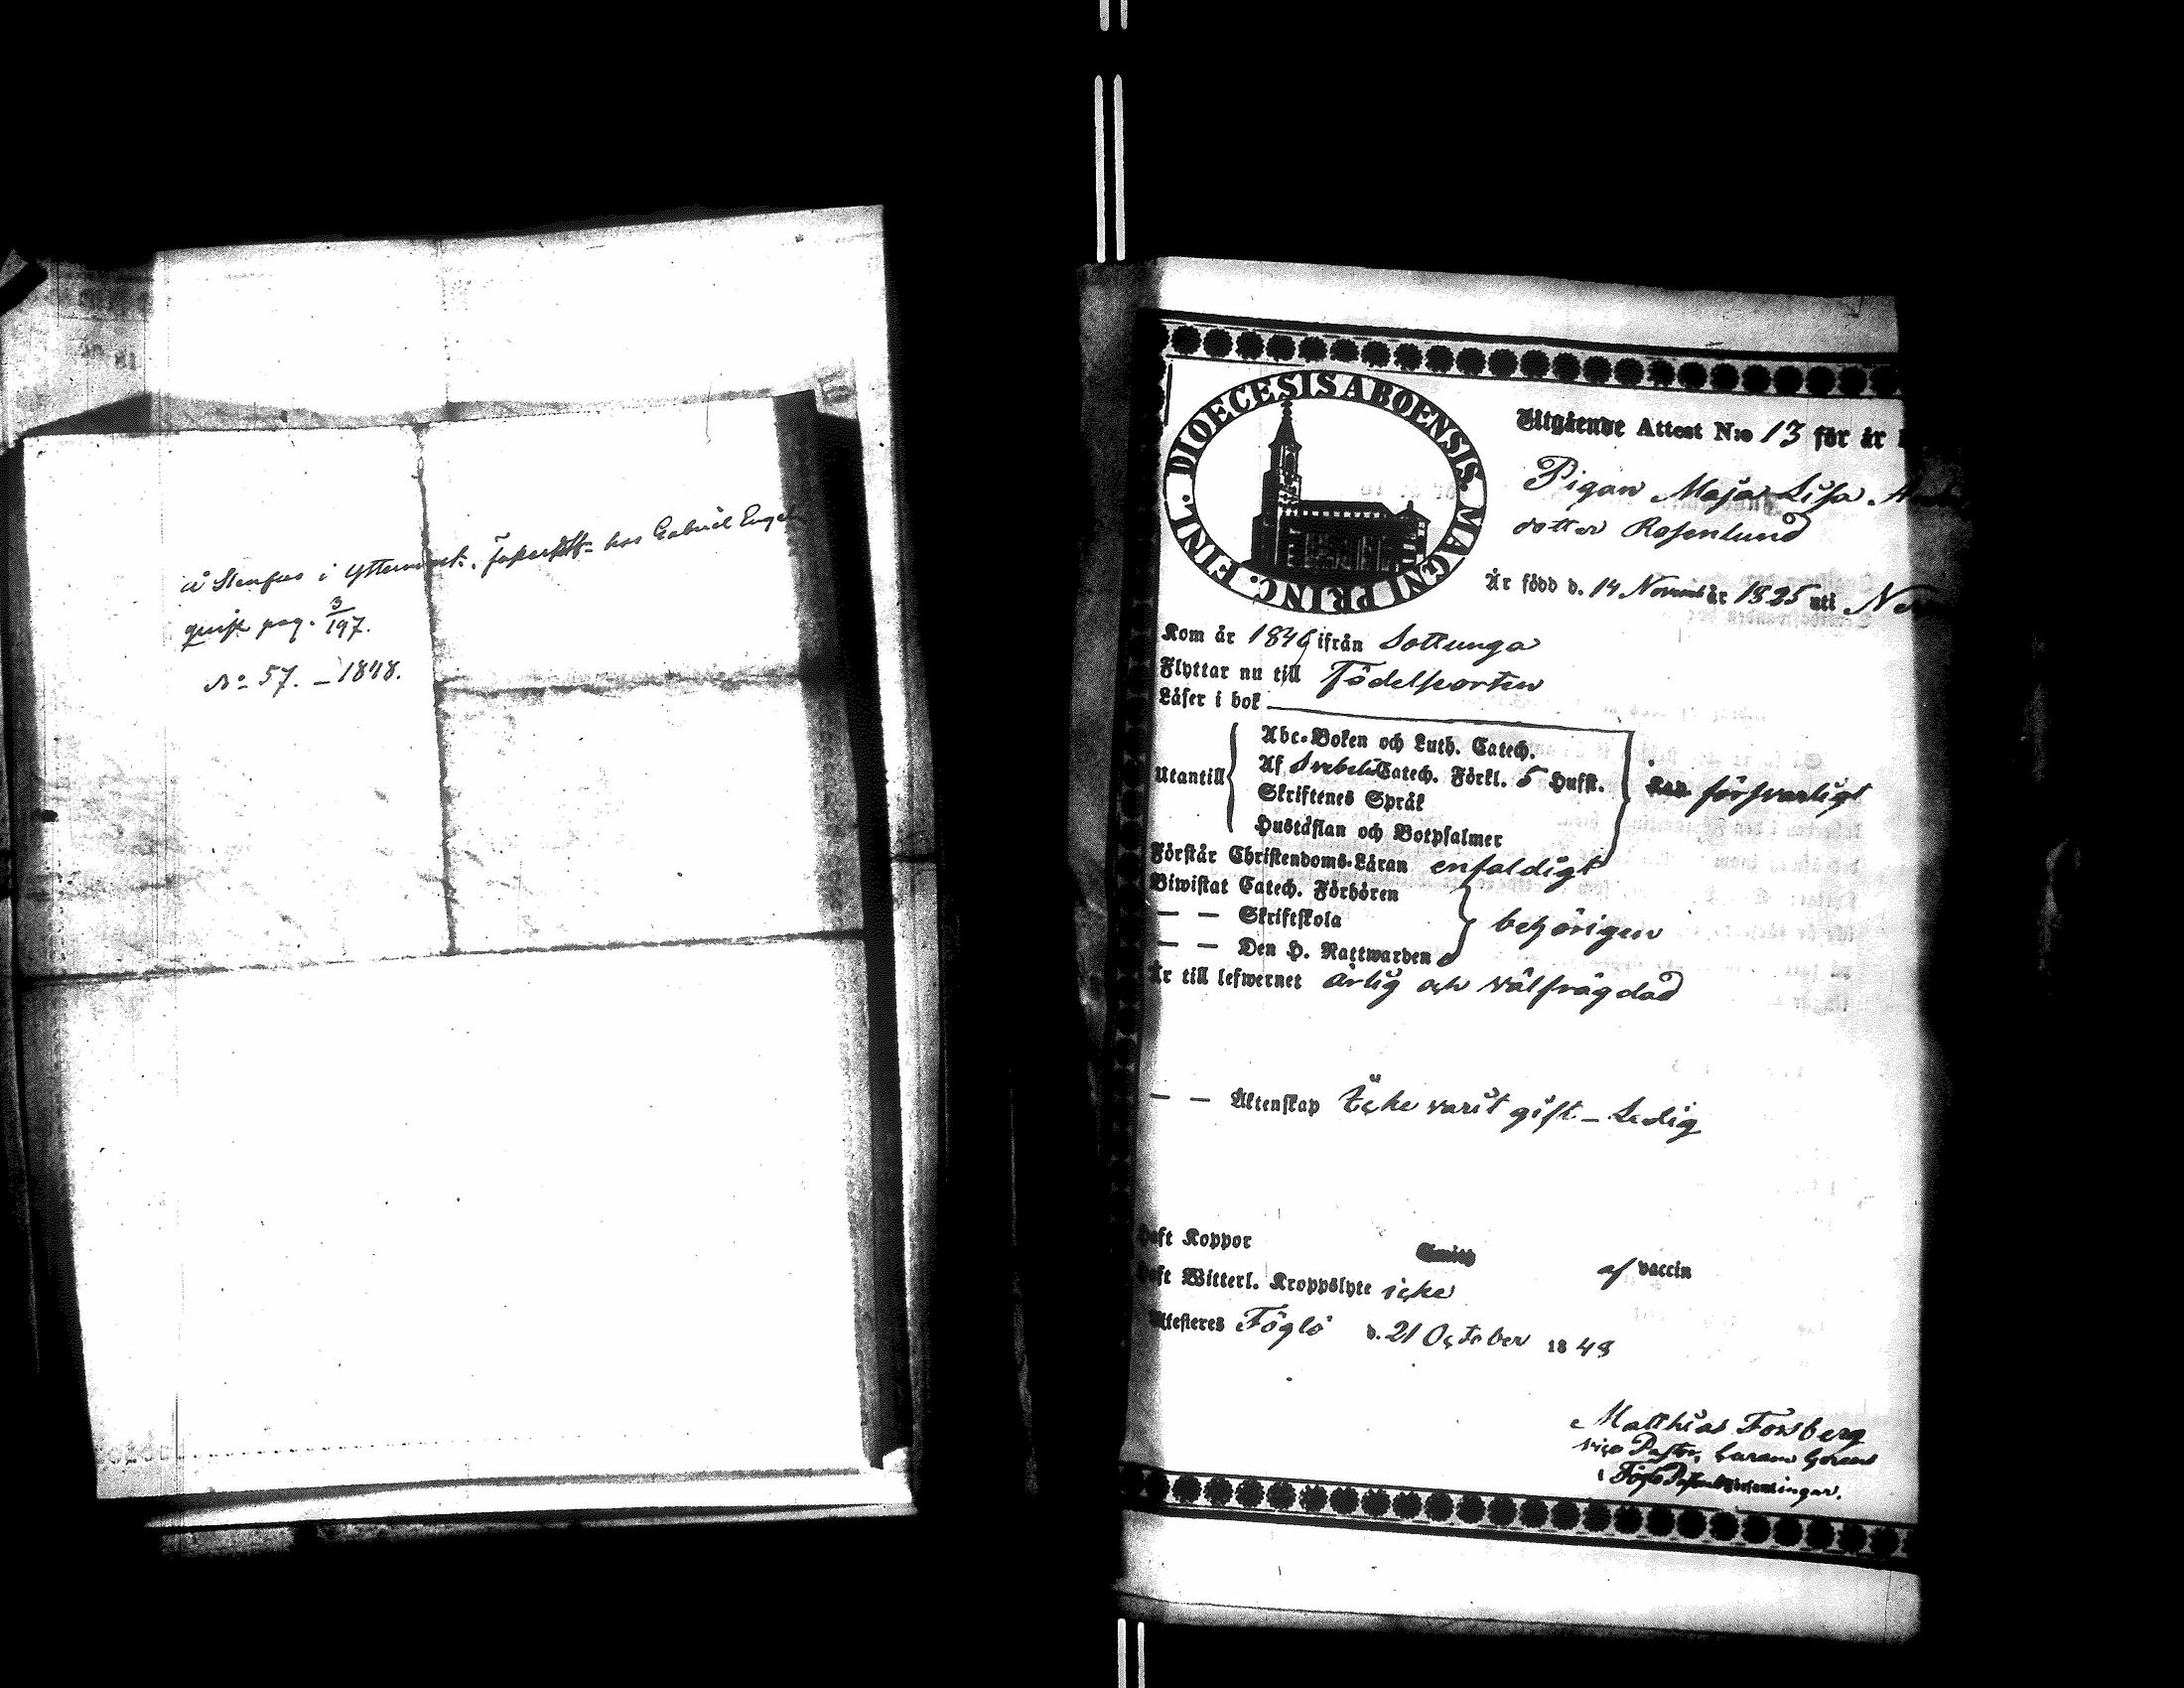 å Stenfors i Yttermark. hos Gabriel
pag. 3/197.
No 57. – 1848.
DIOECESIS ABOENSIS. MAGNI PRINC. FINL.
Utgående Attest N:o 13 för år
Pigan Maja Lisa
dotter Rosenlund
Är född d. 14 Novemb år 1825 uti
Kom år 1846 ifrån Sottunga
Flyttar nu till Födelseorten
Läser i bok
Utantill
Abc-Boken och Luth. Catech.
Af Svebelii Catech. Förkl. 5 Hufst.
Skriftenes Språk
Hustaflan och Botpsalmer
försvarligt
Förstår Christendoms-Läran enfaldigt
Biwistat Catech. Förhören
— — Skriftskola
— — Den H. Nattwarden
behörigen
Är till lefwernet ärlig och välfrägdad
— — Äktenskap Icke varit gift – Ledig
Haft Koppor af vaccin
Haft Witterl. Kroppslyte icke
Attesteres Föglö d. 21 October 1848
Matthias Forsberg
vice Pastor,